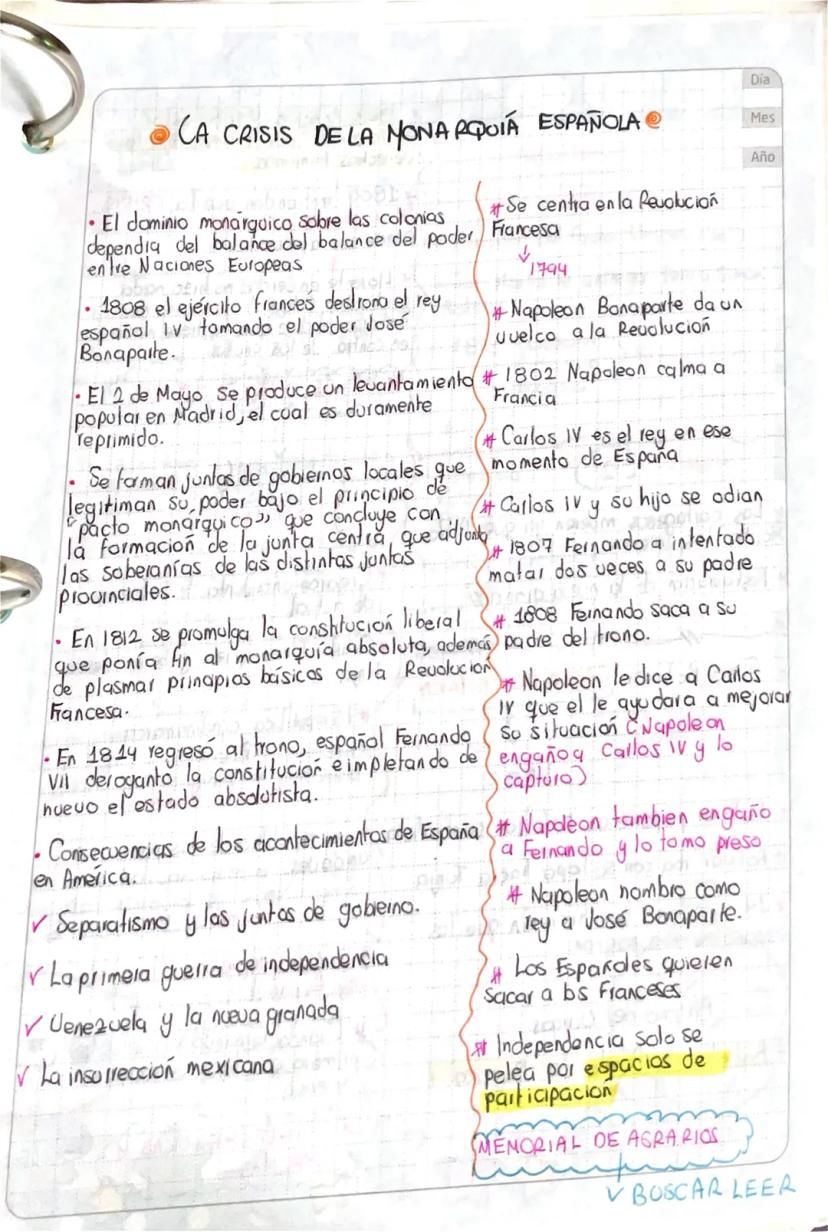 Día
Mes
Año
LA CRISIS DE LA MONARQUIÁ ESPAÑOLA
• El dominio monárquico sobre las colonias
dependia del balance del balance del poder
entre Naciones Europeas
• 1808 el ejército francés destrona el rey
español IV tomando el poder José
Bonaparte.
• El 2 de Mayo se produce un levantamiento
popular en Madrid, el cual es duramente
reprimido.
• Se forman juntas de gobiernos locales que
legitiman su poder bajo el principio de
"pacto monarquico" que concluye con
la formación de la junta centra, que adjunta
las soberanías de las distintas juntas
provinciales.
• En 1812 se promulga la constitución liberal
que ponía fin al monarquía absoluta, además
de plasmar principios básicos de la Revolución
Francesa.
• En 1814 regreso al trono, español Fernando
VII deroganto la constitución e impletando de
nuevo el estado absolutista.
• Consecuencias de los acontecimientos de España
en América.
✓ Separatismo y las juntas de gobierno.
✓ La primera guerra de independencia
✓ Venezuela y la nueva granada
✓ La insurrección mexicana
# Se centra en la Revolución
Francesa
↓
1794
# Napoleon Bonaparte da un
vuelco a la Revolución
# 1802 Napoleon calma a
Francia
# Carlos IV es el rey en ese
momento de España
# Carlos IV y su hijo se odian
# 1807 Fernando a intentado
matar dos veces a su padre
# 1808 Fernando saca a su
padre del trono.
# Napoleon le dice a Carlos
IV que el le ayudara a mejorar
su situación (Napoleon
engaño a Carlos IV y lo
captura)
# Napoleon tambien engaño
a Fernando y lo tomo preso
# Napoleon nombro como
rey a José Bonaparte.
# Los Españoles quieren
sacar a los Franceses
# Independencia solo se
pelea por espacios de
participacion
MEMORIAL DE AGRARIOS
✓ BUSCAR LEER